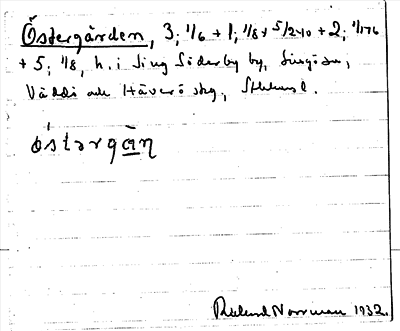 Östergården, 3; 1/6 + 1; 1/8 + 5/240 + 2; 1/176
+ 5; 1/8, h. i Sing Söderby by, Singö sn,
Väddö och Häverö skg, Sthlms l.
östərgån
Rickard Norrman 1932.